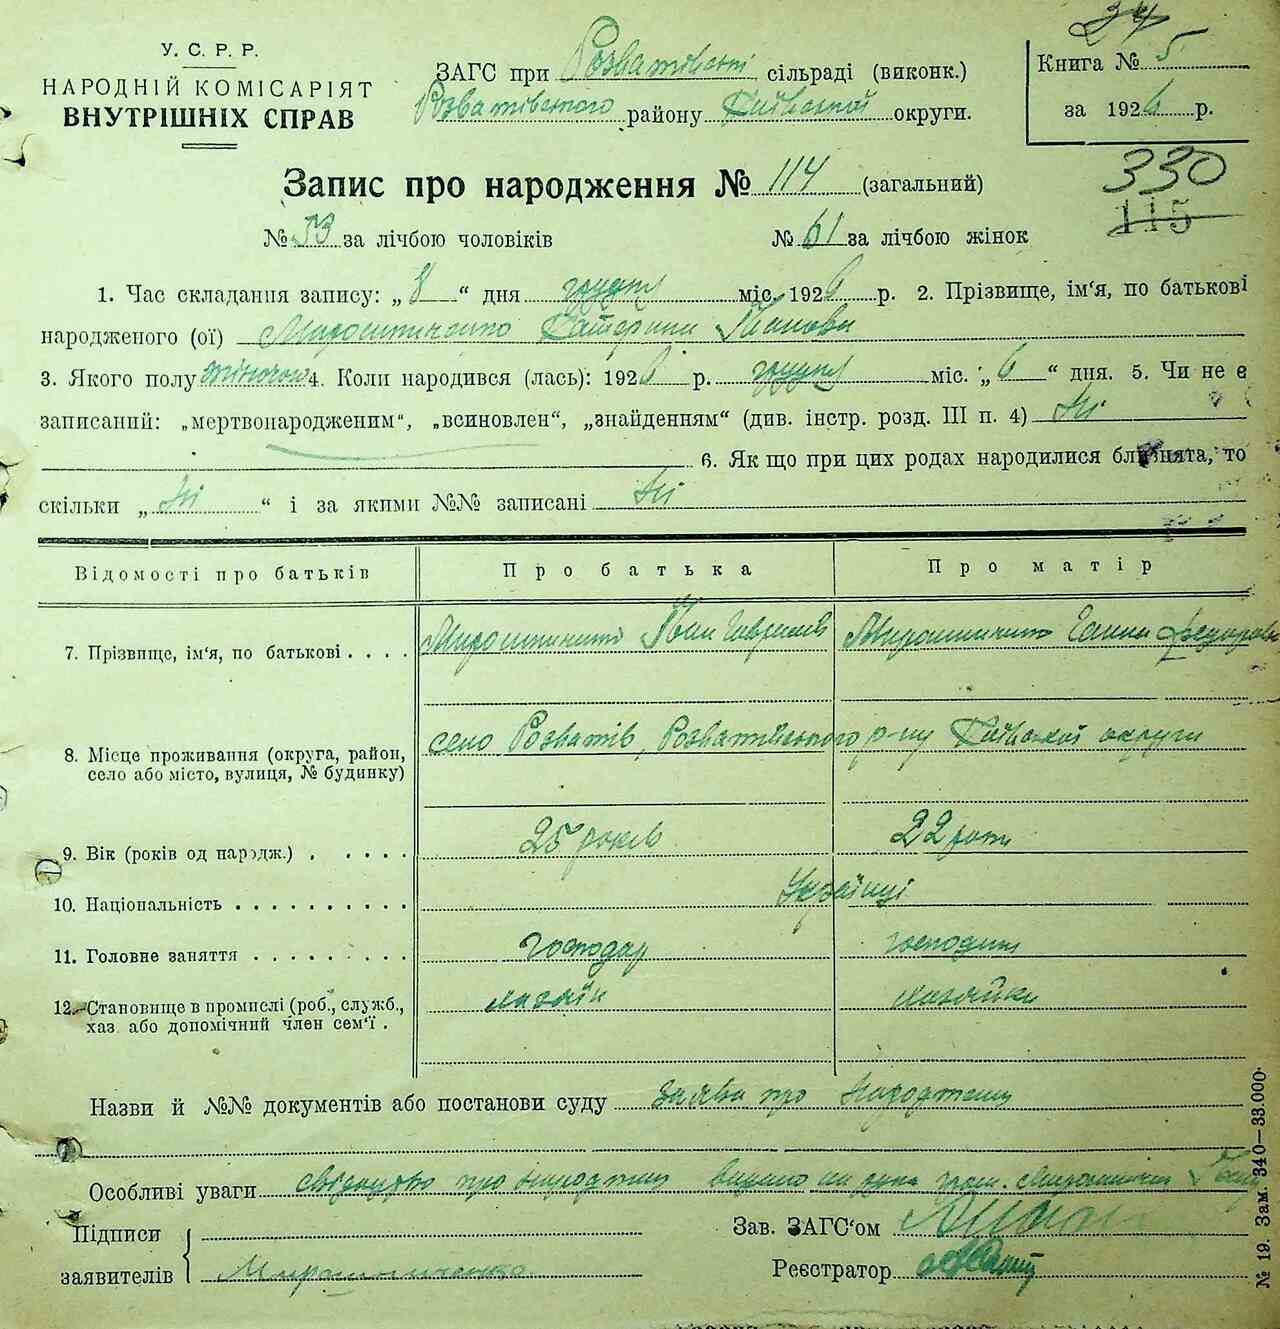 У. С. Р. Р.
НАРОДНІЙ КОМІСАРІЯТ
ВНУТРІШНІХ СПРАВ
ЗАГС при Розватівські сільраді (виконк.)
Розватівського району Київської округи.
Книга № 5
за 1926 р.
Запис про народження № 114 (загальний)
330
115
№ 53 за лічбою чоловіків № 61 за лічбою жінок
1. Час складання запису: „8“ дня грудня міс. 1926 р. 2. Прізвище, ім'я, по батькові
народженого (ої) Мирошниченко Катерина Іванови
3. Якого полу жіночого 4. Коли народився (лась): 1926 р. грудня міс. „6“ дня. 5. Чи не є
записаний: „мертвонародженим“, „всиновлен“, „знайденням“ (див. інстр. розд. III п. 4) Ні
6. Як що при цих родах народилися близнята, то
скільки „Ні“ і за якими №№ записані Ні
Відомості про батьків Про батька Про матір
7. Прізвище, ім'я, по батькові . . . . Мирошниченко Іван Гаврилів Мирошниченко Ганна Федорови
8. Місце проживання (округа, район, село Розватів, Розватівського р-ну Київської округи
село або місто, вулиця, № будинку)
9. Вік (років од народж.) . . . . . 25 років 22 роки
10. Національність . . . . . . . . . . Українці
11. Головне заняття . . . . . . . . . господар господиня
12. Становище в промислі (роб., служб., хазяїн хазяйка
хаз або допомічний член сем'ї .
Назви й №№ документів або постанови суду заява про народження
Особливі уваги свідоцтво про народження видано на руки гром. Мирошниченко
Підписи
заявителів Мирошниченко
Зав. ЗАГС'ом
Реєстратор
№ 19. Зам. 340—33.000.